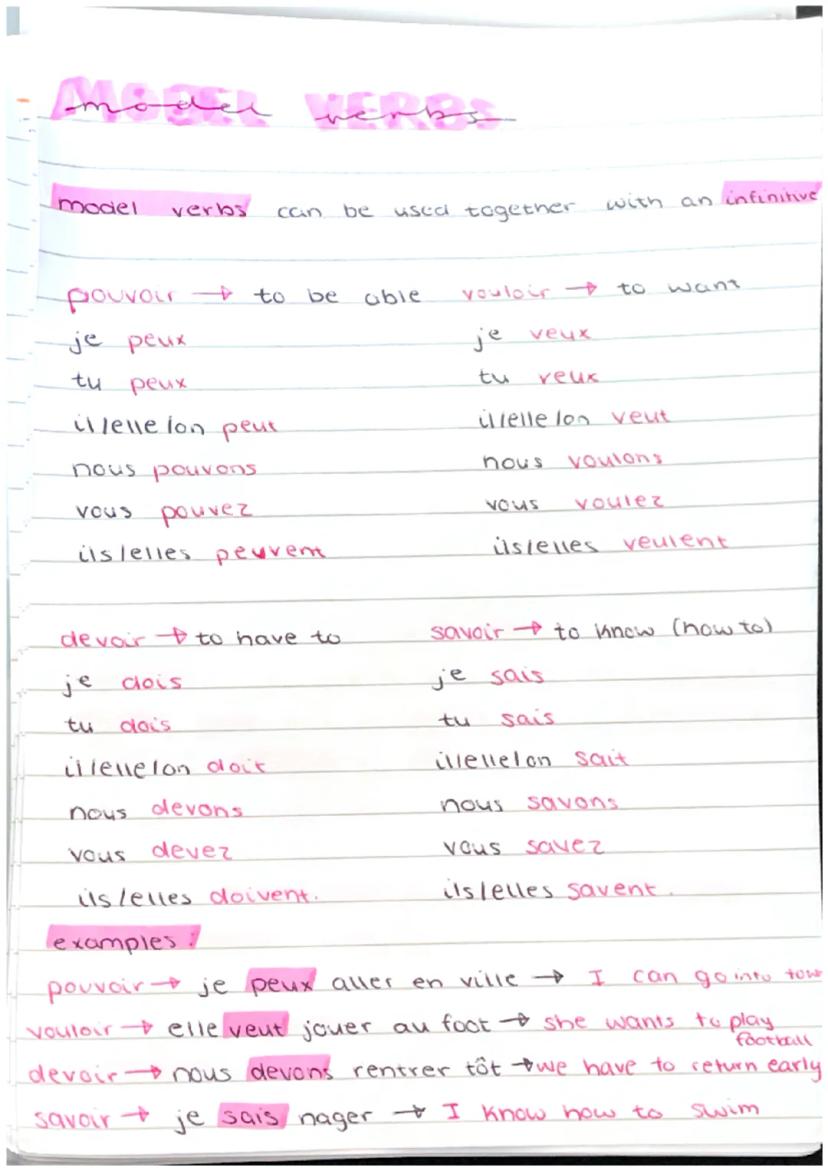 model verbs
model verbs can be used together with an infinitive
pouvoir → to be able vouloir → to want
je peux je veux
tu peux tu veux
il/elle/on peut il/elle/on veut
nous pouvons nous voulons
vous pouvez vous voulez
ils/elles peuvent ils/elles veulent
devoir → to have to savoir → to know (how to)
je dois je sais
tu dois tu sais
il/elle/on doit il/elle/on sait
nous devons nous savons
vous devez vous savez
ils/elles doivent. ils/elles savent.
examples:
pouvoir → je peux aller en ville → I can go into tow
vouloir → elle veut jouer au foot → she wants to play
football
devoir → nous devons rentrer tôt → we have to return early
savoir → je sais nager → I know how to swim